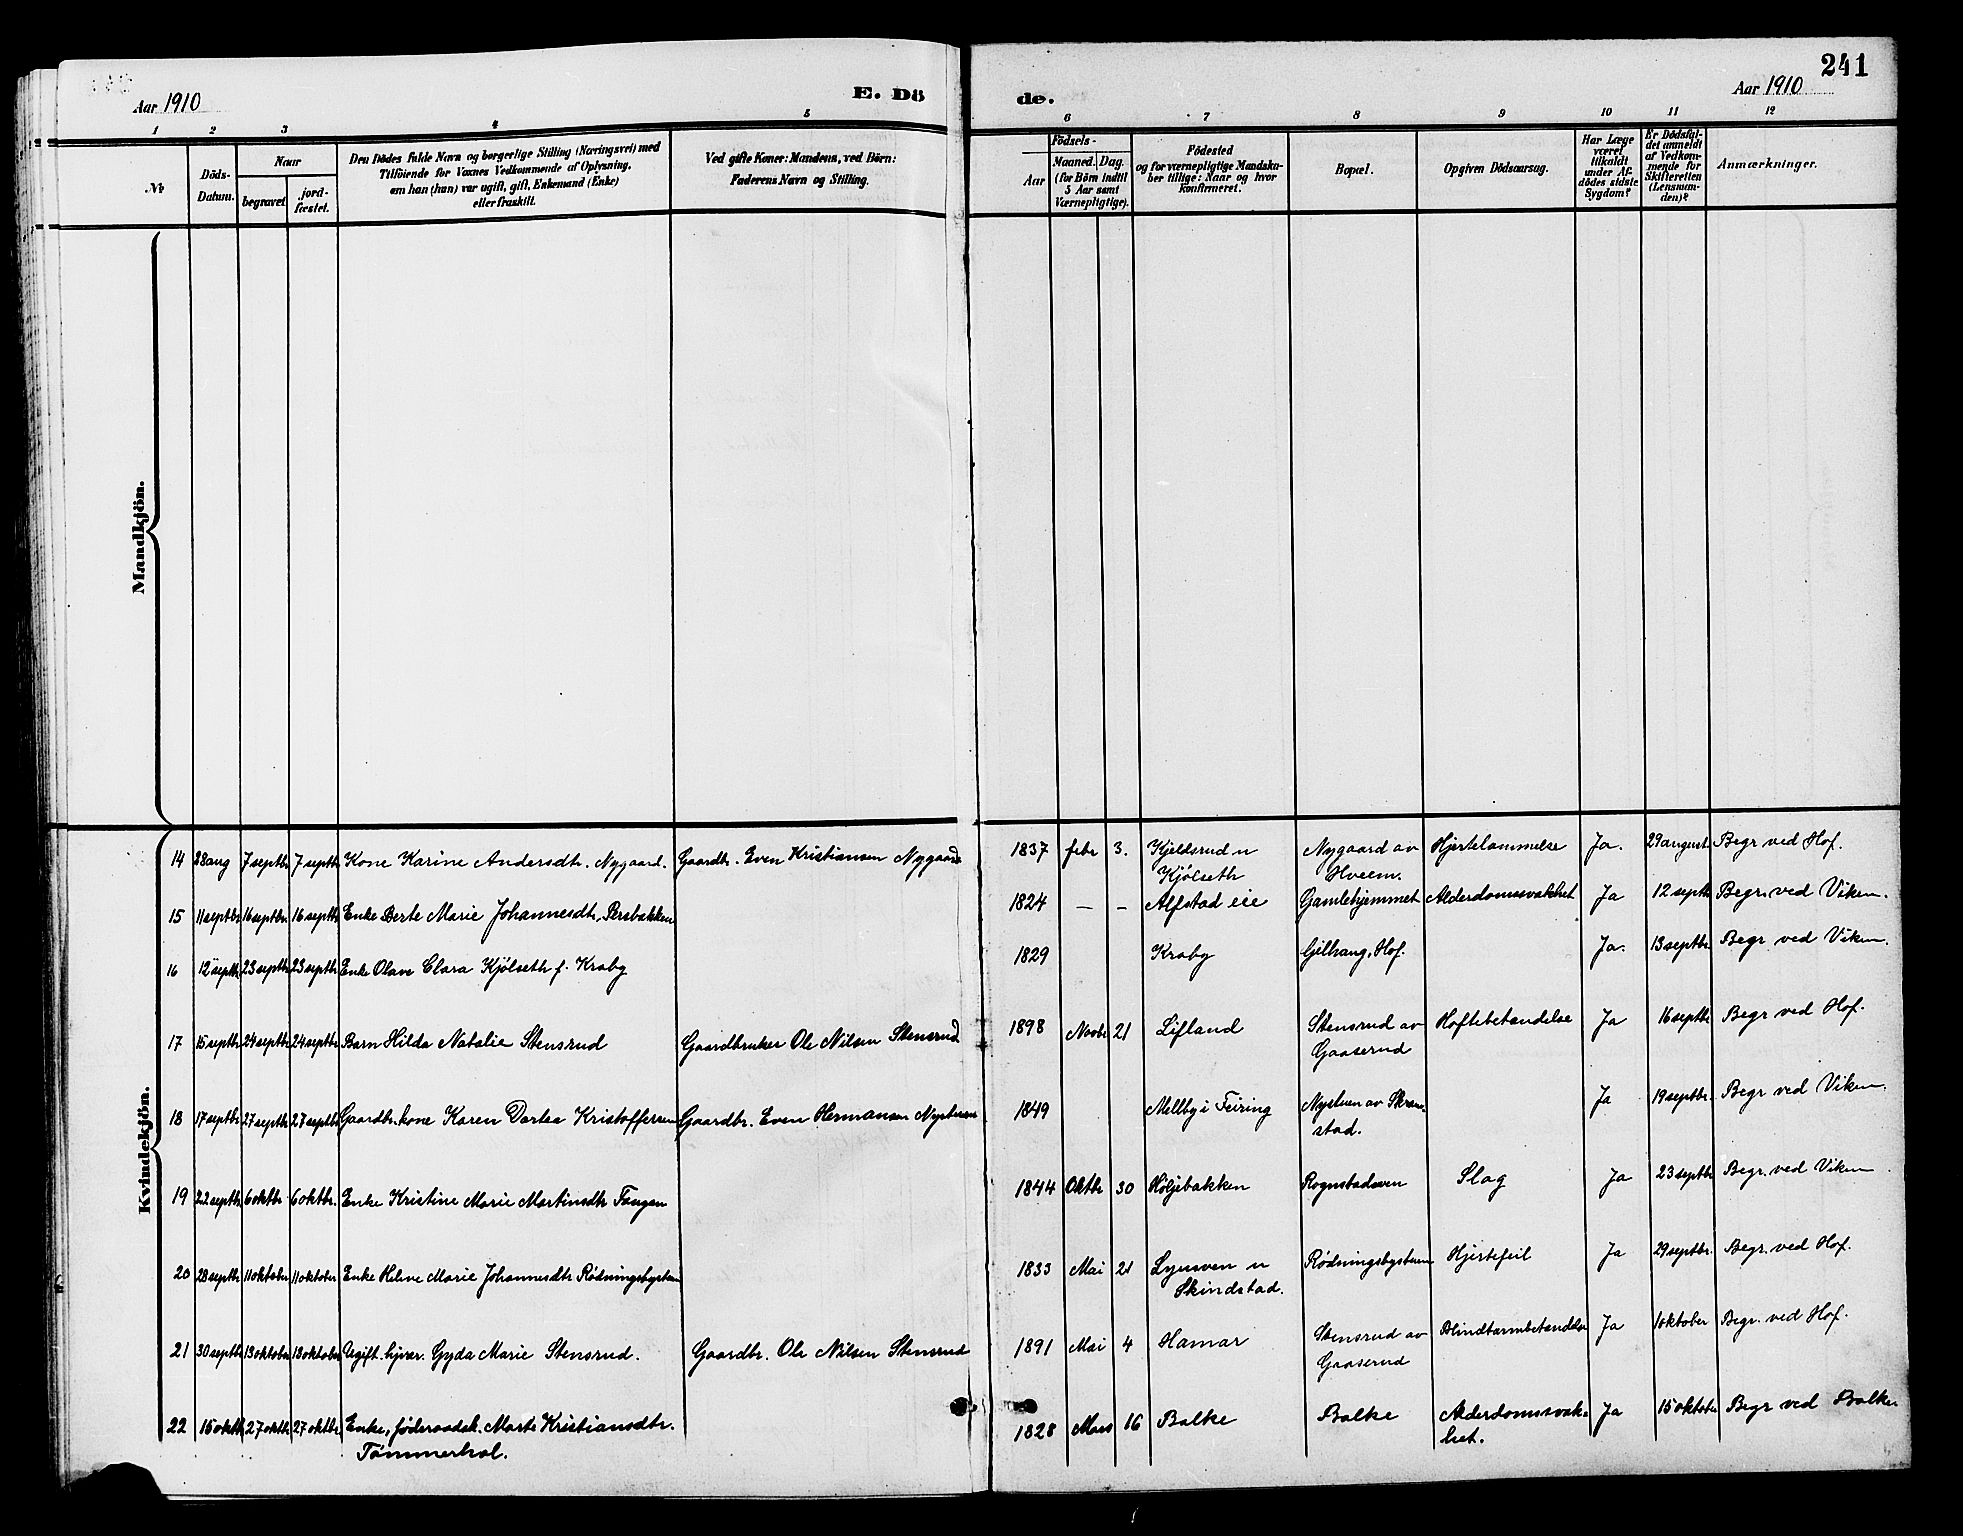 241
Aar 1910
E. Dö
de.
Aar 1910
1 2 3 4 5 6 7 8 9 10 11 12
№
Döds-
Datum.
Naar
begravet
jord-
fæstet.
Den Dödes fulde Navn og borgerlige Stilling (Næringsvei) med
Tilföiende for Voxnes Vedkommende af Oplysning,
om han (hun) var ugift, gift, Enkemand (Enke)
eller fraskilt.
Ved gifte Koner: Mandens, ved Börn:
Faderens Navn og Stilling.
Födsels-
Aar
Maaned. Dag.
(for Börn indtil
5 Aar samt
Værnepligtige).
Födested
og for værnepligtige Mandskа-
ber tillige: Naar og hvor
konfirmeret.
Bopæl.
Opgiven Dödsaarsag.
Har Læge
været
tilkaldt
under Af-
dödes sidste
Sygdom?
Er Dödsfal-
det anmeldt
af Vedkom-
mende for
Skifteretten
(Lensman-
den)?
Anmærkninger.
Mandkjön.
Kvindekjön.
14 28 aug 7 septbr 7 septbr Kone Karine Andersdtr. Nygaard. Gaardbr. Even Kristiansen Nygaard 1837 febr 3. Kjeldsrud u Nygaard av Hjertelammelse Ja. 29 august Begr ved Hof.
Kjölseth Hveem.
15 11 septbr 16 septbr 16 septbr Enke Berte Marie Johannesdtr. Persbakken 1824 — – Alfstad eie Gamlehjemmet Alderdomssvakhet Ja 12 septbr Begr. ved Viken.
16 12 septbr 23 septbr 23 septbr Enke Olave Clara Kjölseth f. Kraby 1829 Kraby Gjilhaug, Hof. Ja. 13 septbr Begr ved Viken.
17 15 septbr 24 septbr 24 septbr Barn Hilda Natalie Stensrud Gaardbruker Ole Nilsen Stensrud 1898 Novbr 21 Lifland Stensrud av Hoftebetændelse Ja 16 septbr Begr ved Hof.
Gaaserud
18 17 septbr 27 septbr 27 septbr Gaardbr. kone Karen Dortea Kristoffersen Gaardbr. Even Hermansen Nystuen 1849 Mellby i Feiring Nystuen av Skram- Ja 19 septbr. Begr ved Viken.
stad.
19 22 septbr 6 oktbr 6 oktbr. Enke Kristine Marie Martinsdtr Tangen 1844 Oktbr 30 Höljebakken Rognstadsven Slag Ja 23 septbr Begr. ved Viken
20 28 septbr 11 oktober 11 oktober Enke Helene Marie Johannesdtr Rödningsbystuen 1833 Mai 21 u Rödningsbystuen Hjertefeil Ja 29 septbr. Begr. ved Hof.
Skindstad.
21 30 septbr 13 oktober 13 oktober Ugift. hjvær. Gyda Marie Stensrud. Gaardbr. Ole Nilsen Stensrud 1891 Mai 4 Hamar Stensrud av Blindtarmbetændelse Ja 1 oktober Begr. ved Hof.
Gaaserud
22 15 oktbr 27 oktbr 27 oktbr Enke, föderaadsk. Marte Kristiansdtr. 1828 Mars 16 Balke Balke Alderdomssvak- Ja 15 oktober Begr ved Balke
Tömmerhol. het.